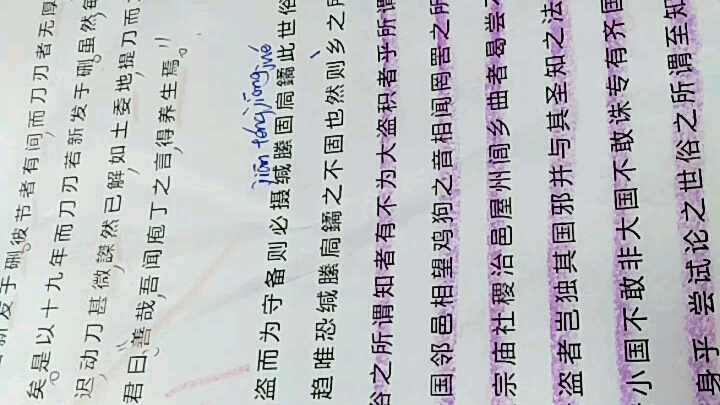 新发于硎。彼节者有间,而刀刃者无厚
矣。是以十九年而刀刃若新发于硎。虽然,每
迟,动刀甚微,謋然已解,如土委地,提刀而
君曰,善哉,吾闻庖丁之言,得养生焉。
jiān téng jiōng jué
盗而为守备则必摄缄縢固扃鐍此世俗
趋唯恐缄縢扃鐍之不固也然则乡之所
俗之所谓知者有不为大盗积者乎所谓
国邻邑相望鸡狗之音相闻罔罟之所
宗庙社稷治邑屋州闾乡曲者曷尝
盗者岂独其国邪并与其圣知之法
小国不敢非大国不敢诛专有齐国
身乎 尝试论之世俗之所谓至知